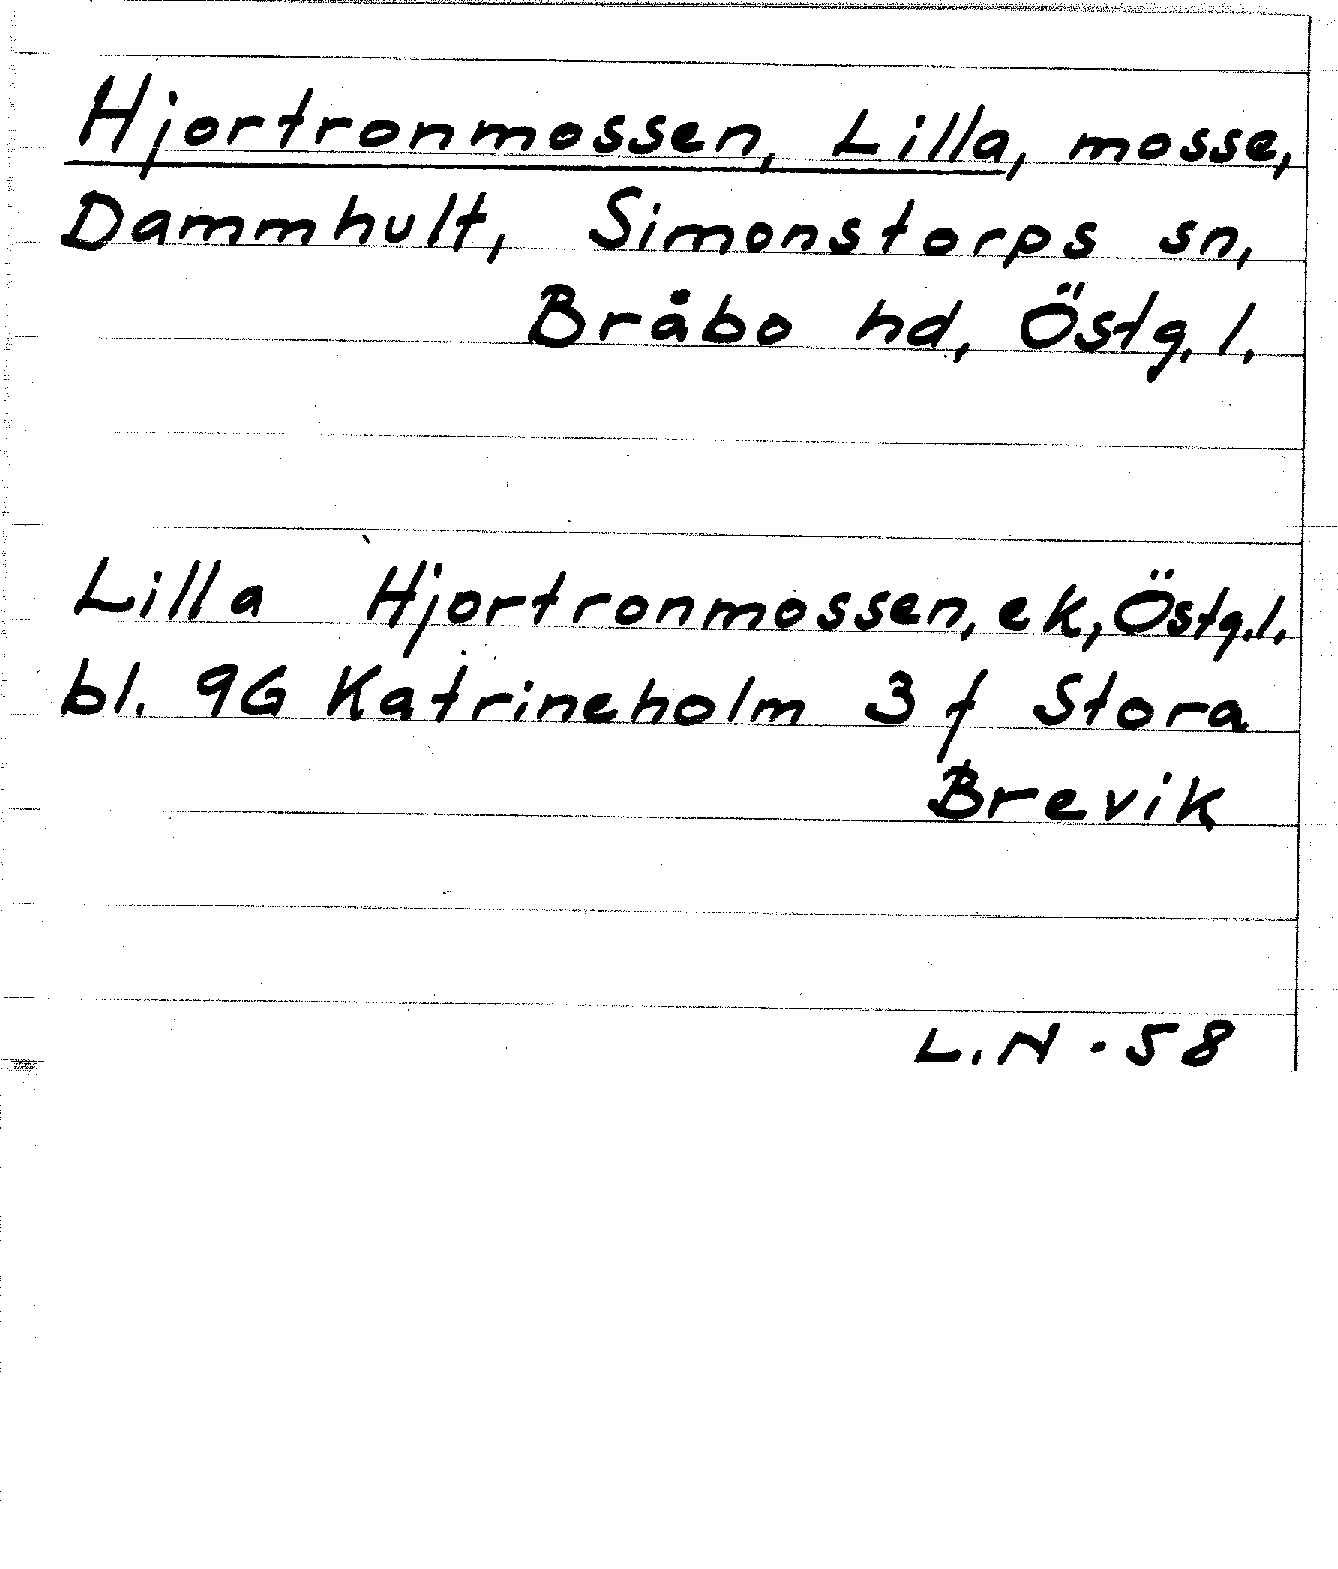 Hjortronmossen, Lilla, mosse,
Dammhult, Simonstorps sn,
Bråbo hd, Östg. l.
Lilla Hjortronmossen, ek, Östg. l.
bl. 9G Katrineholm 3 f Stora
Brevik
L.N - 58